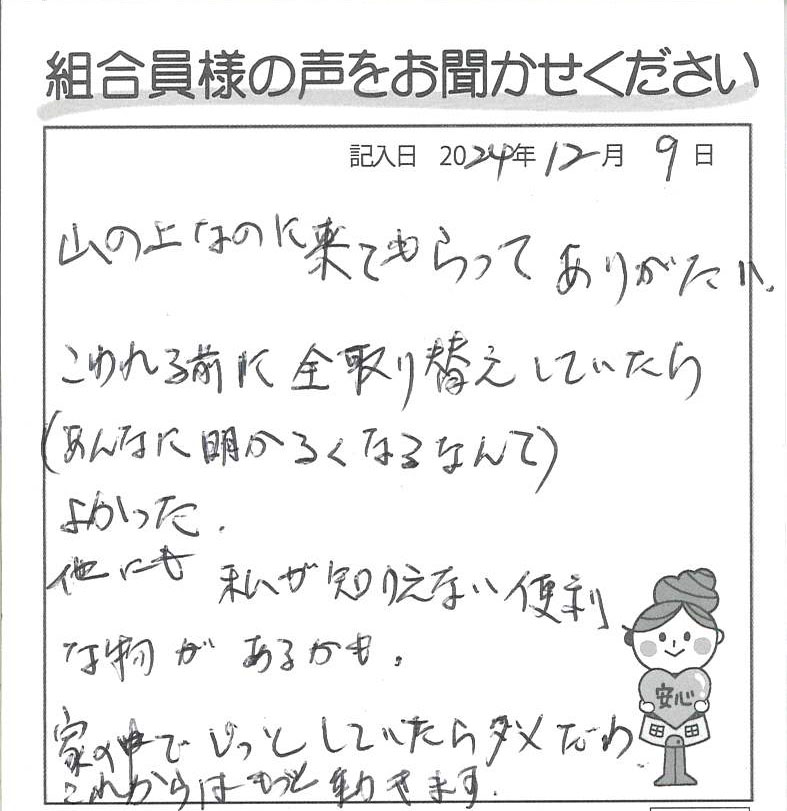 組合員様の声をお聞かせください
記入日 2024年12月9日
山の上なのに来てもらって ありがたい。
こわれる前に 全取り替えしていたら
(あんなに明かるくなるなんて)
よかった.
他にも 私が知りえない便利
な物が あるかも.
家の中で じっとしていたらダメだわ
これからは もっと 動きます.
安心